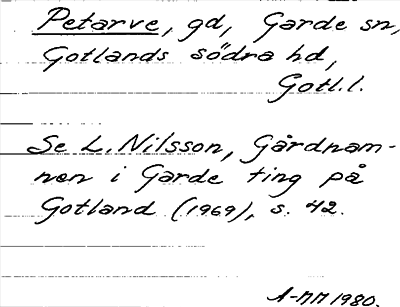 Petarve, gd, Garde sn,
Gotlands södra hd,
Gotl.l.
Se L. Nilsson, Gårdnam-
nen i Garde ting på
Gotland (1969), s. 42.
A-MM 1980.